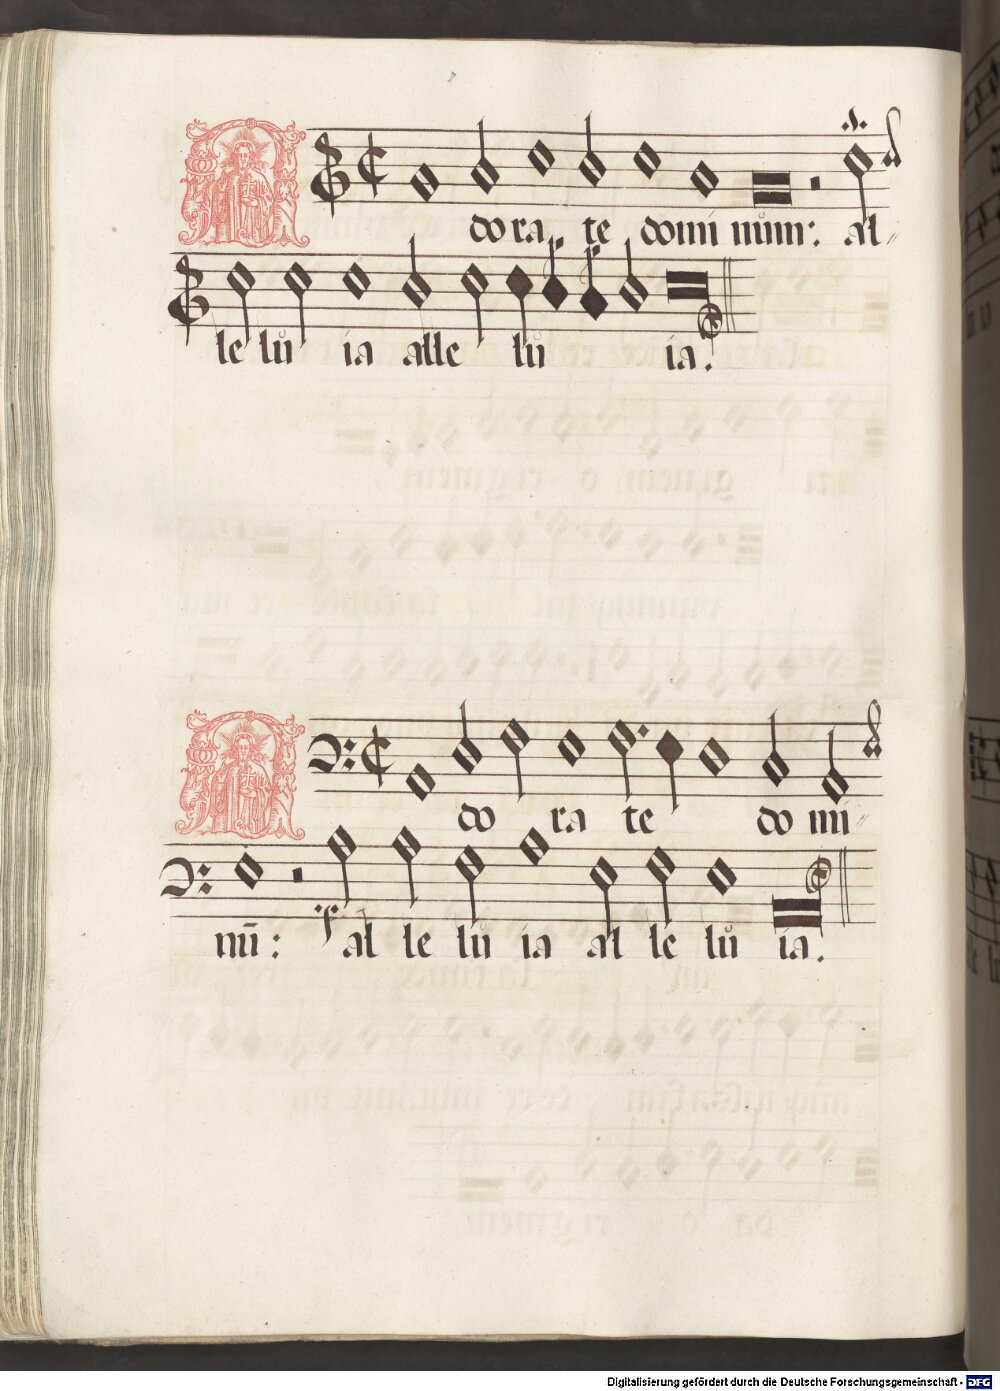 A do ra te domi nům: al⸗
le lů ia alle lů ia.
A do ra te do mi⸗
nū: al le lů ia al le lů ia.
Digitalisierung gefördert durch die Deutsche Forschungsgemeinschaft - DFG